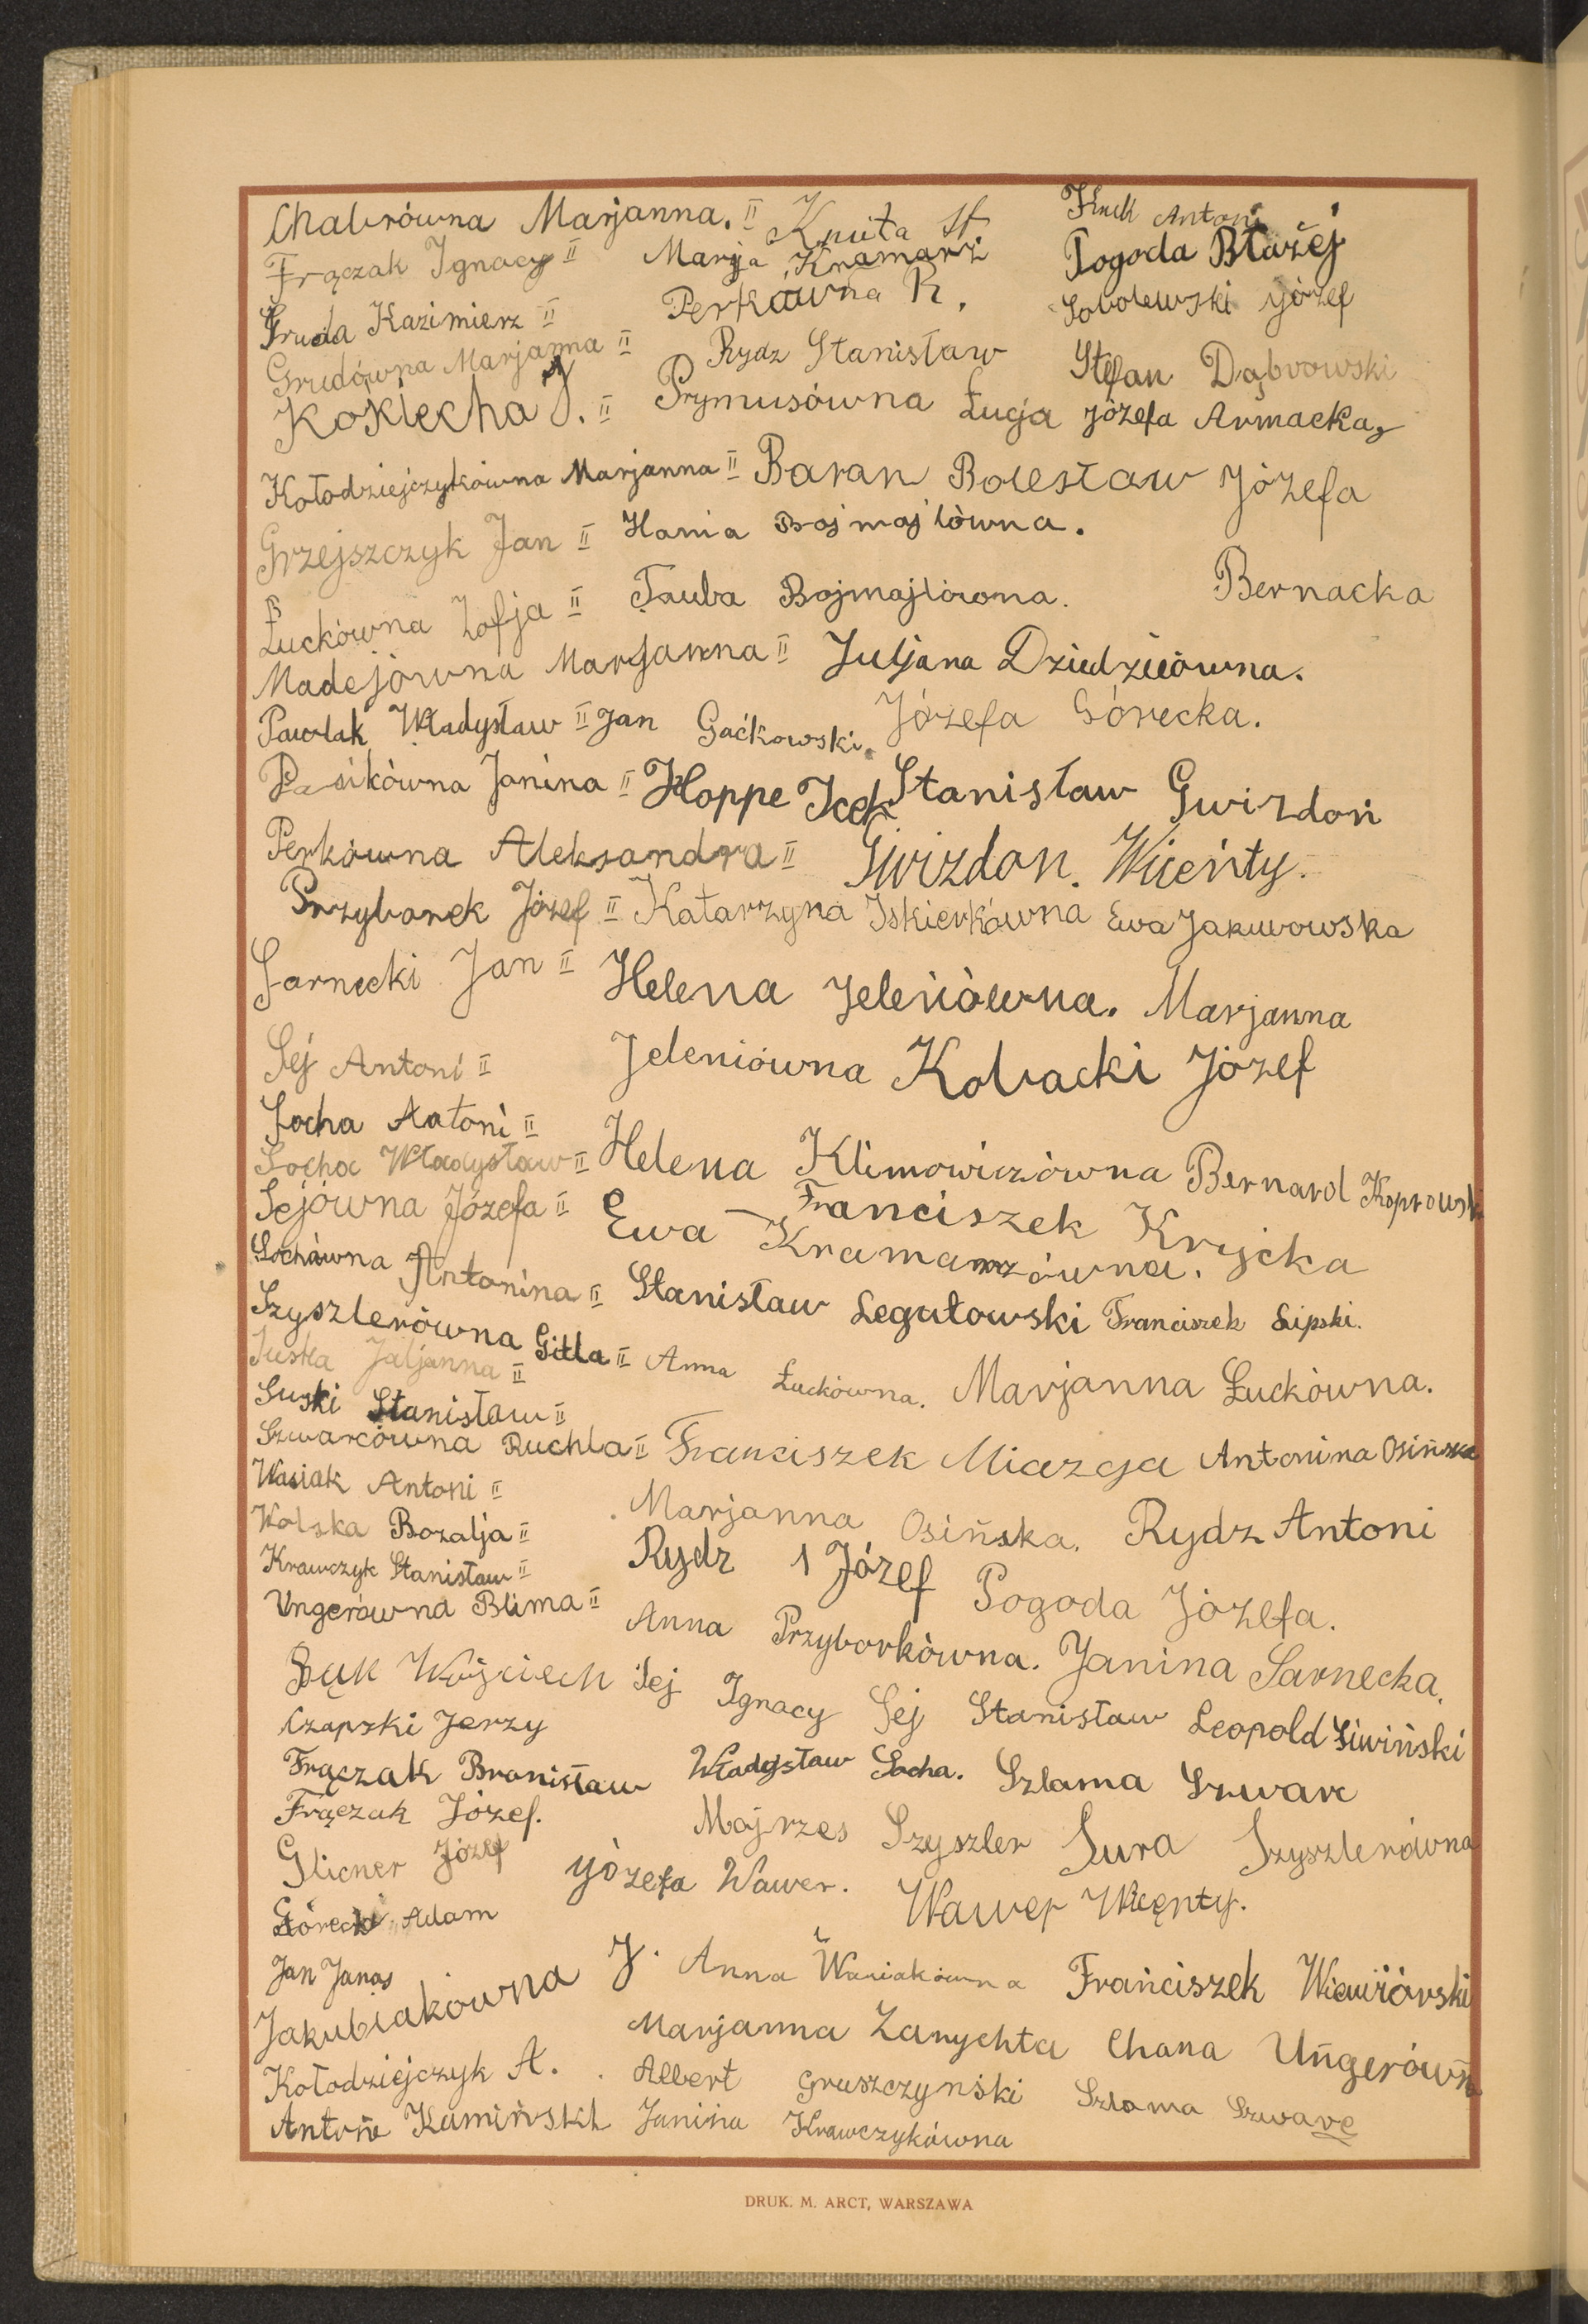 Chabrówna Marjanna. II Knuta St Kruk Antoni
Frączak Ignacy II Marja Kramarz Pogoda Błażej
Gruda Kazimierz II Perkówna R. Sobolewski Józef
Grudówna Marjanna II Rydz Stanisław Stefan Dąbrowski
Koklecha J. II Prymusówna Łucja Józefa Armacka,
Kołodziejczykówna Marjanna II Baran Bolesław Józefa
Grzejszczyk Jan II Hania Bojmajlówna.
Łuckówna Zofja II Tauba Bojmajlówna. Bernacka
Madejówna Marjanna II Juljana Dziedzicówna.
Pawlak Władysław II Jan Gaćkowski. Józefa Górecka.
Pasikówna Janina II Hoppe Icek Stanisław Gwizdoń
Perkówna Aleksandra II Gwizdon. Wicenty.
Przyborek Józef II Katarzyna Iskierkówna Ewa Jakubowska
Sarnecki Jan II Helena Jeleniówna. Marjanna
Sej Antoni II Jeleniówna Kobacki Józef
Socha Antoni II
Socha Władysław II Helena Klimowiczówna Bernard Koprowski
Sejówna Józefa II Franciszek Kryjcka
Ewa Kramarzówna. jcka
Sochówna Antonina II Stanisław Legutowski Franciszek Lipski.
Szyszlerówna Gitla II Anna Łuckówna. Marjanna Łuckówna.
Suska Juljanna II
Suski Stanisław II
Szwarcówna Ruchla II Franciszek Miazga Antonina Osińska
Wasiak Antoni II Marjanna Osińska. Rydz Antoni
Wolska Rozalja II
Krawczyk Stanisław II Rydz 1 Józef Pogoda Józefa.
Ungerówna Blima II Anna Przyborkówna. Janina Sarnecka.
Bąk Wojciech Sej Ignacy Sej Stanisław Leopold Siwiński
Czapski Jerzy
Frączak Bronisław Władysław Socha. Szlama Szwarc
Frączak Józef. Majrzes Szyszler Sura Szyszlerówna
Glicner Józef Józefa Wawer. Wawer Wicenty.
Górecki Adam
Jan Janas
Jakubiakówna J. Anna Wasiakówna Franciszek Wiewiórski
Marjanna Zarychta Chana Ungerówn
Kołodziejczyk A. Albert Gruszczyński Szlama Szwarc
Antoni Kamiński Janina Krawczykówna
DRUK. M. ARCT, WARSZAWA